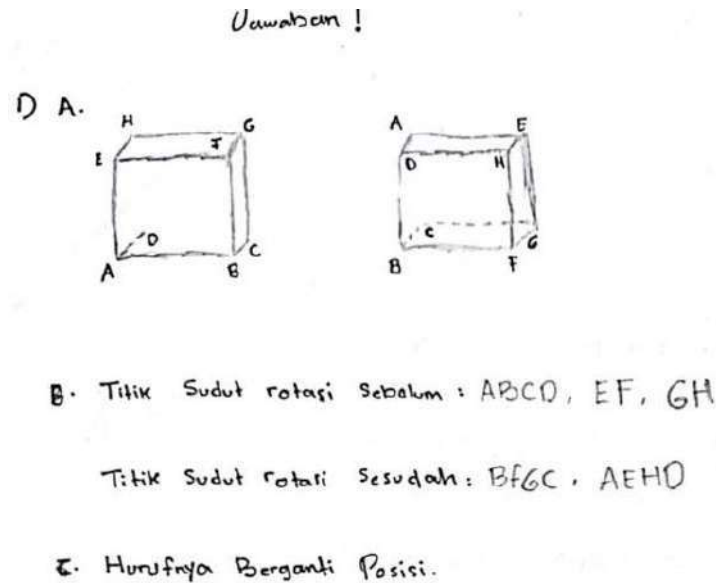 Jawaban !
1) A.
H G
E F
D
A B C
A E
D H
C G
B F
B. Titik Sudut rotasi Sebelum : ABCD, EF, GH
Titik Sudut rotasi Sesudah : BFGC, AEHD
C. Hurufnya Berganti Posisi.